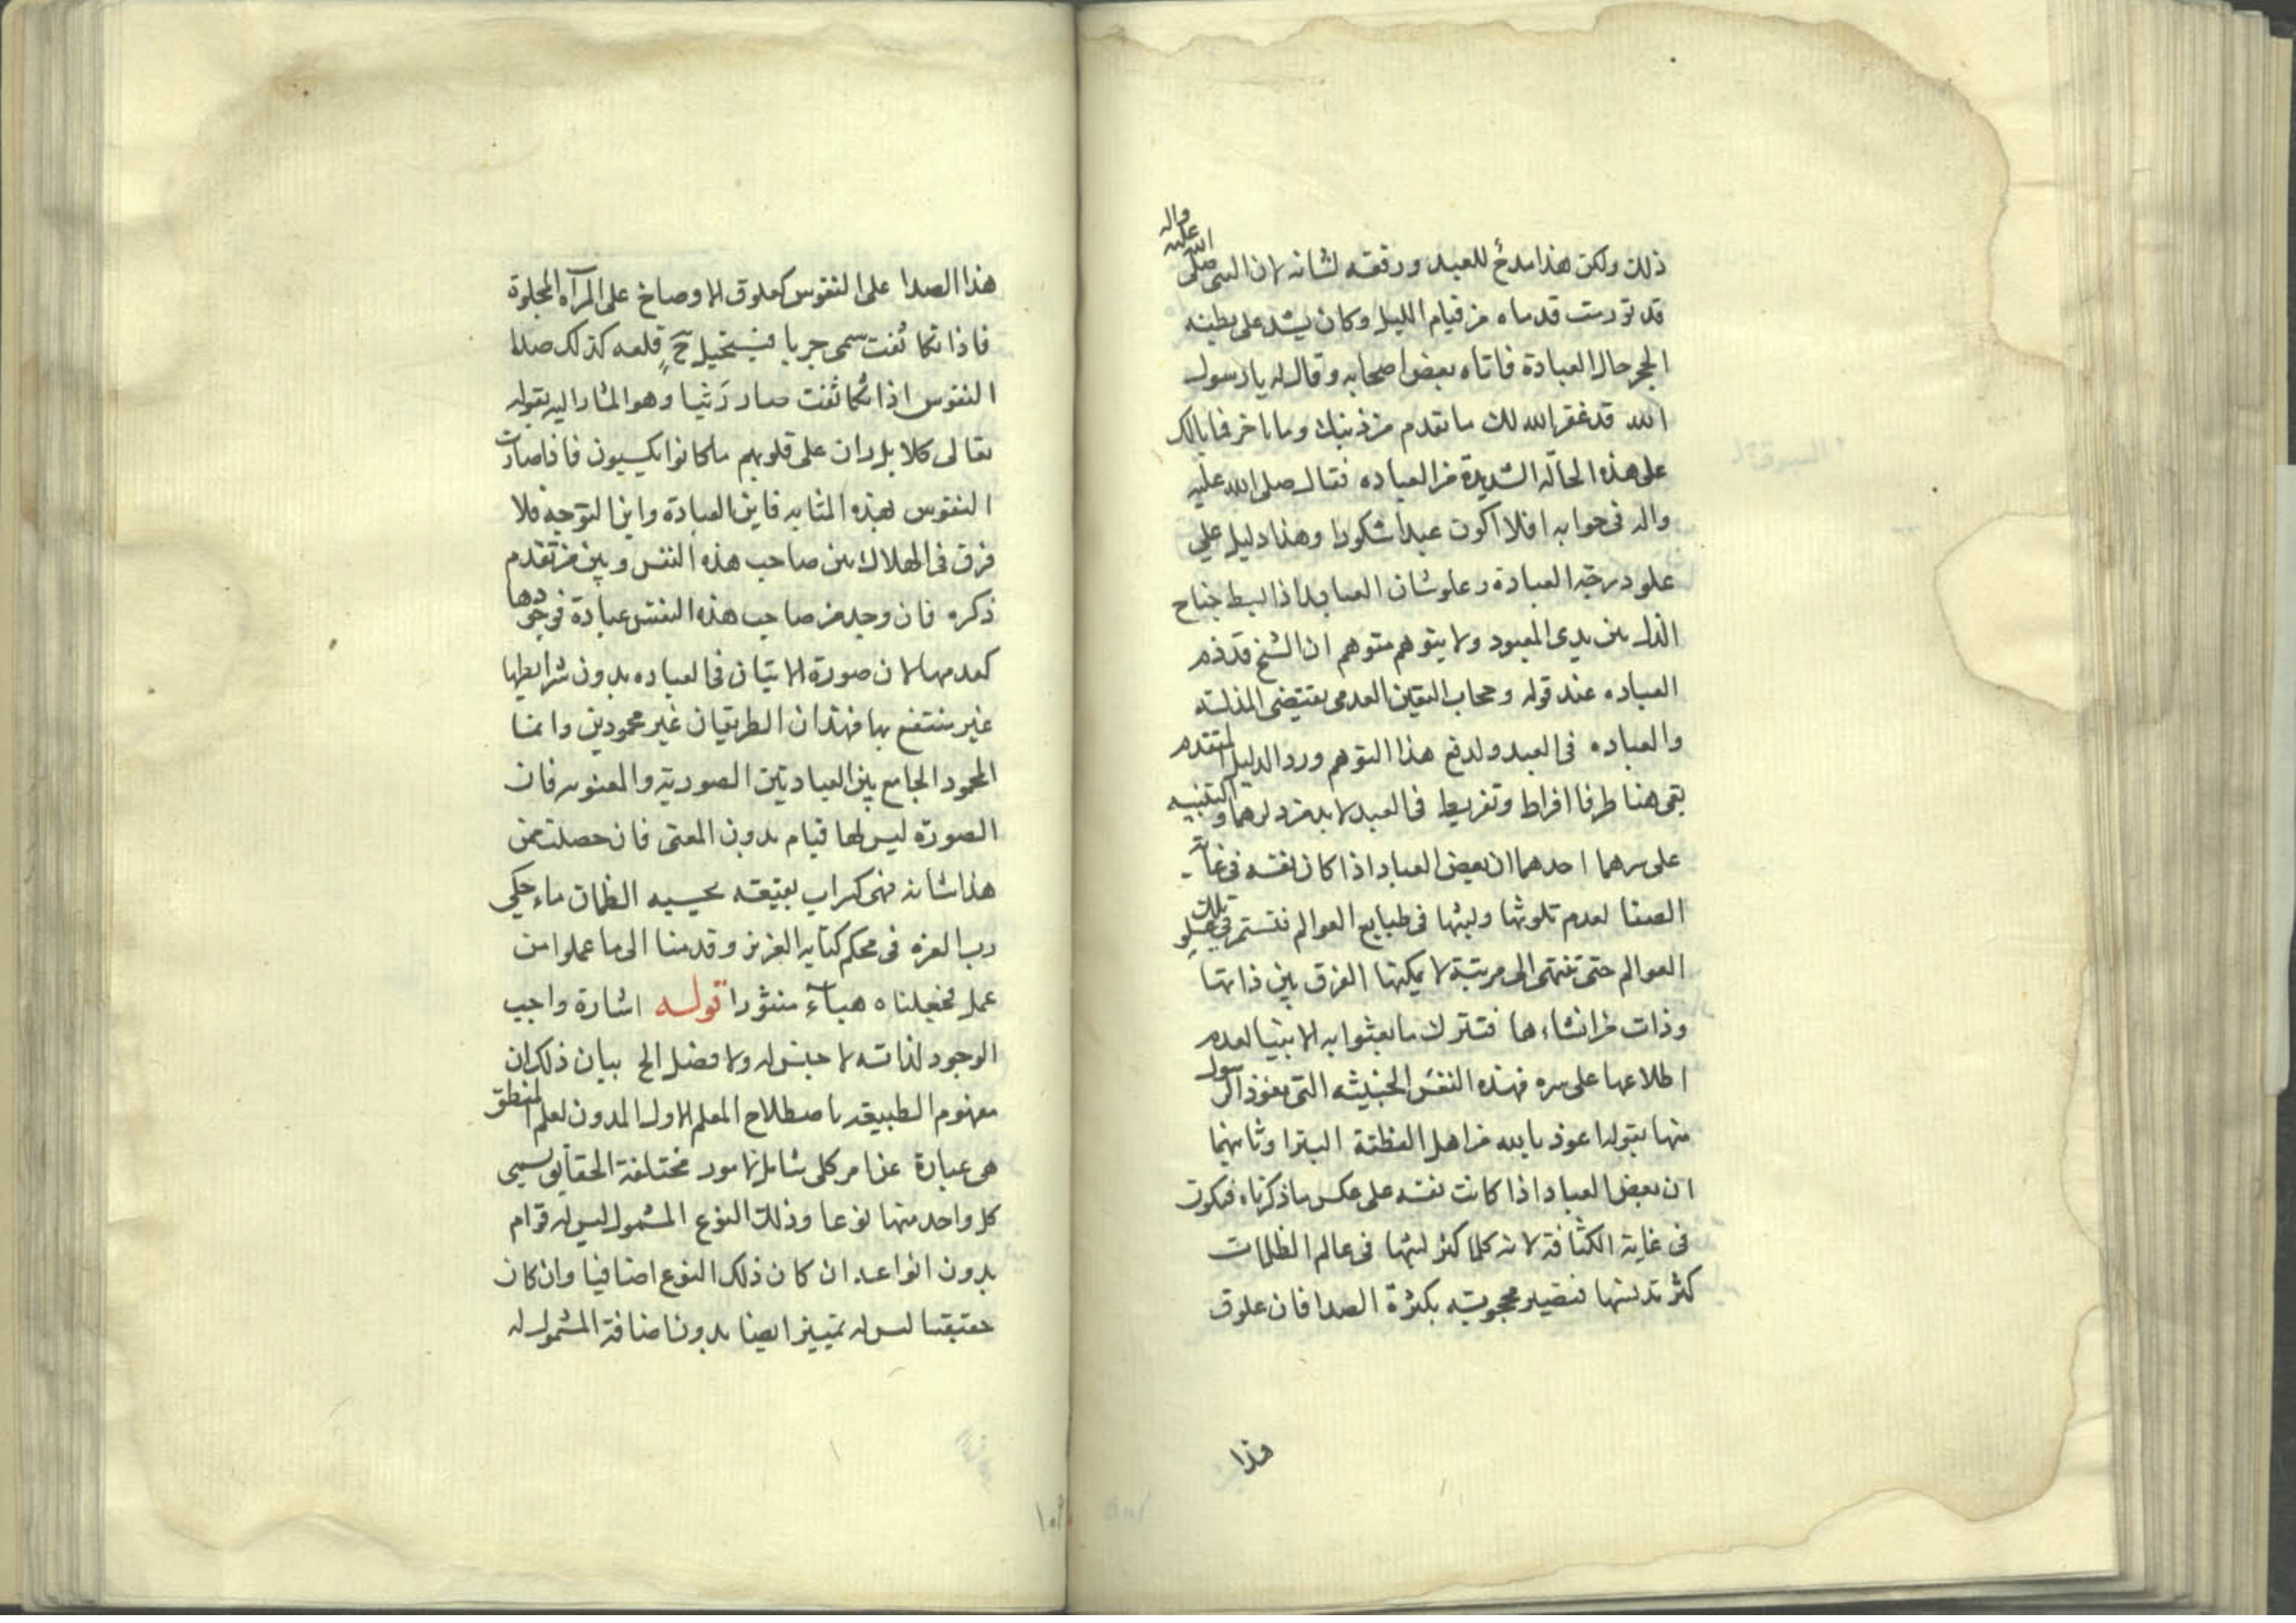 ذلك ولكن هذا مدح للعبد ورفعه لشانه لان النبى صلى الله عليه واله
قد تورمت قدماه من قيام الليل وكان يشد على بطنه
الحجر حال العبادة فاتاه بعض اصحابه وقال له يا رسول
الله قد غفر الله لك ما تقدم من ذنبك وما تاخر فما بالك
على هذه الحالة الشديدة من العباده فقال صلى الله عليه
واله فى جوابه افلا اكون عبدا شكورا وهذا دليل على
علو درجة العبادة وعلو شان العابد اذا لبسط جناح
الذل بين يدى المعبود ولا يتوهم متوهم ان الشيخ قد ذم
العباده عند قوله وحجاب التعين العدمى يقتضى المذلته
والعباده فى العبد ولدفع هذا التوهم ورد الدليل المتقدم
بقى هنا طرفا افراط وتفريط فى العبد لا بد من ذكرهما والتنبيه
على سرهما احدهما ان بعض العباد اذا كان نفسه فى غاية
الصفا لعدم تلوثها ولبثها فى طبايع العوالم فتستمر فى تلك
العوالم حتى تنتهى الى مرتبة لا يمكنها الفرق بين ذاتها
وذات من انشاءها فتترك ما بعثوا به الانبيا لعدم
اطلاعها على سره فهذه النفس الخبيثه التى تعوذ الرسول
منها بقوله اعوذ بالله من اهل الفطنة البترا وثانيهما
ان بعض العباد اذا كانت نفسه على عكس ما ذكرناه فيكون
فى غاية الكثافة لانه كلما كثر لبثها فى عالم الظلمات
كثر تدنسها فتصير محجوبته بكثرة الصدا فان علوق
هذا
هذا الصدا على النفوس كعلوق الاوصاخ على المرآه المجلوة
فاذا تكاثفت سمى جربا فيستحيل ح قلعه كذلك صدا
النفوس اذا تكاثفت صار رَينا وهو المشار اليه بقوله
تعالى كلا بل ران على قلوبهم ما كانوا يكسبون فاذا صارت
النفوس بهذه المثابه فاين العبادة واين التوجه فلا
فرق فى الهلاك بين صاحب هذه النفس وبين من تقدم
ذكره فان وجد من صاحب هذه النفس عبادة فوجودها
كعدمها لان صورة الاتيان فى العباده بدون شرايطها
غير منتفع بها فهذان الطريقان غير محمودين وانما
المحمود الجامع بين العبادتين الصورية والمعنويه فان
الصورة ليس لها قيام بدون المعنى فان حصلت ممن
هذا شانه فهى كسراب بقيعه يحسبه الظمان ماء حكى
رب العزه فى محكم كتابه العزيز وقدمنا الى ما عملوا من
عمل فجعلناه هباءً منثورا قوله اشارة واجب
الوجود لذاته لا جنس له ولا فصل الخ بيان ذلك ان
مفهوم الطبيعة باصطلاح المعلم الاول المدون لعلم المنطق
هى عبارة عن امر كلى شامل لامور مختلفة الحقايق يسمى
كل واحد منها نوعا وذلك النوع المشمول ليس له قوام
بدون انواعه ان كان ذلك النوع اضافيا وان كان
حقيقيا ليس له تمييز ايضا بدون اضافة المشمول له